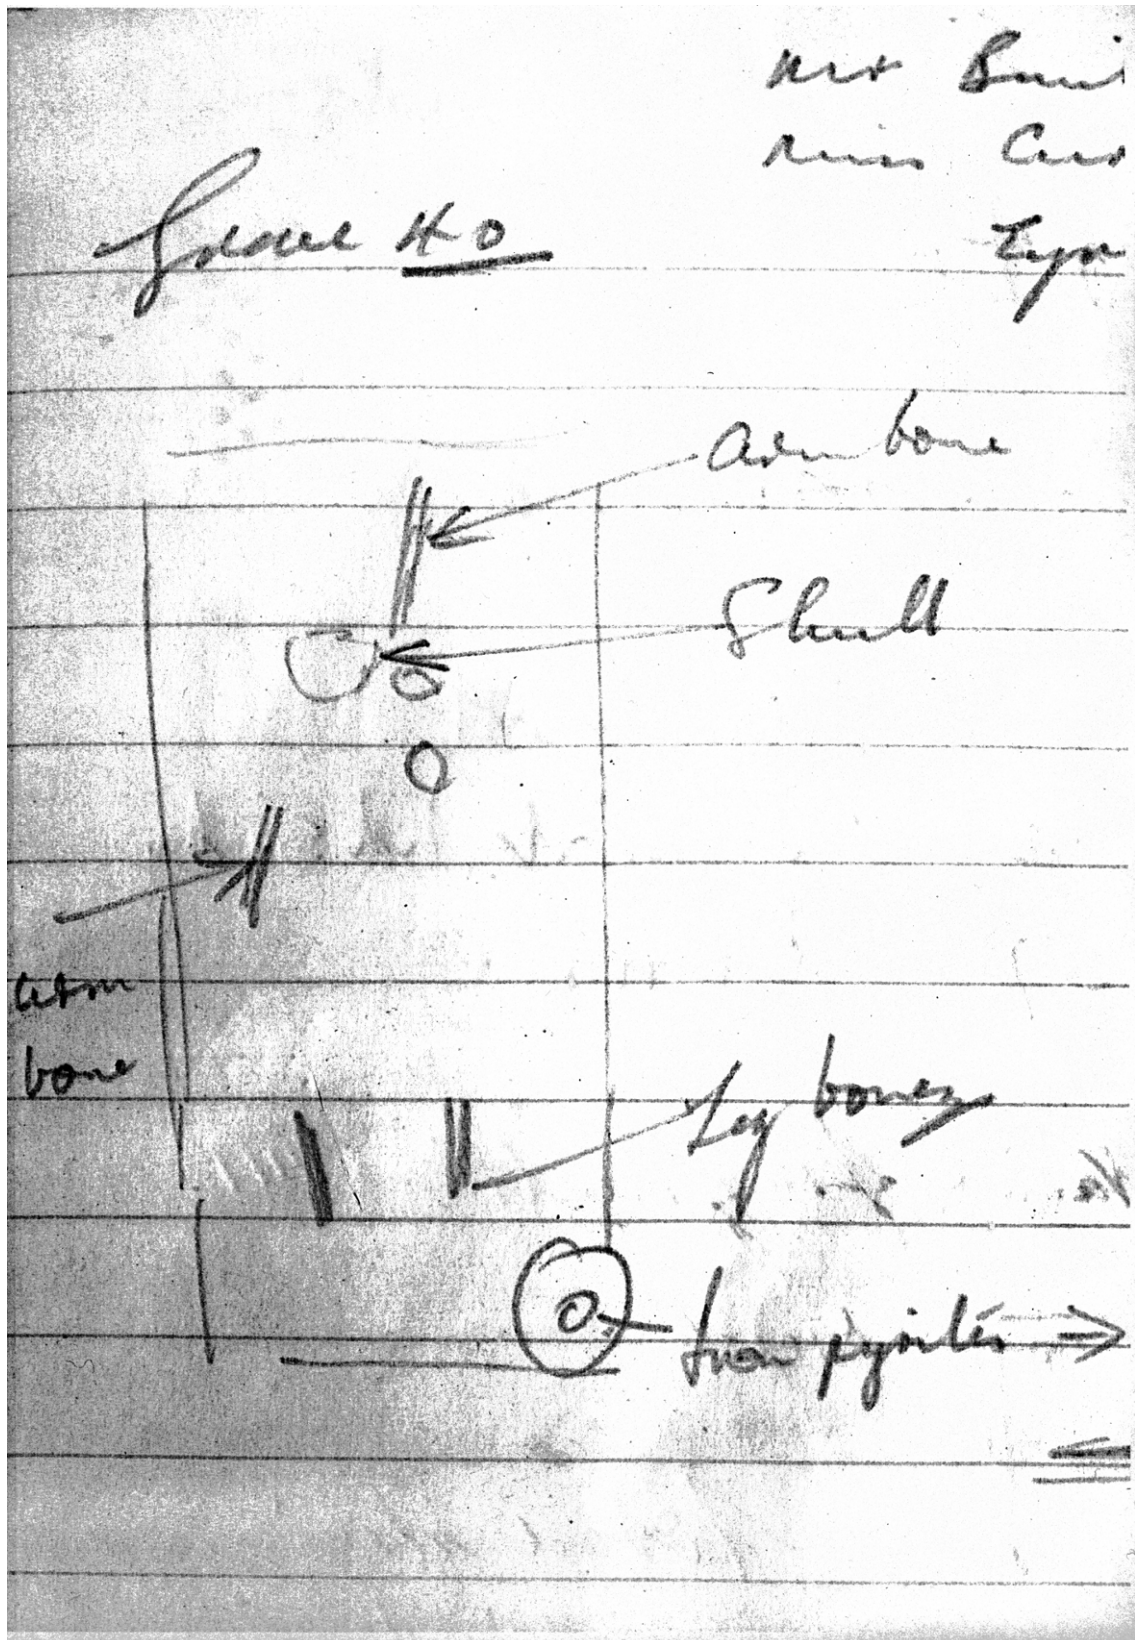 Miss
Grave 40
Arm bone
Skull
arm
bone
Leg bones
Iron pyrites